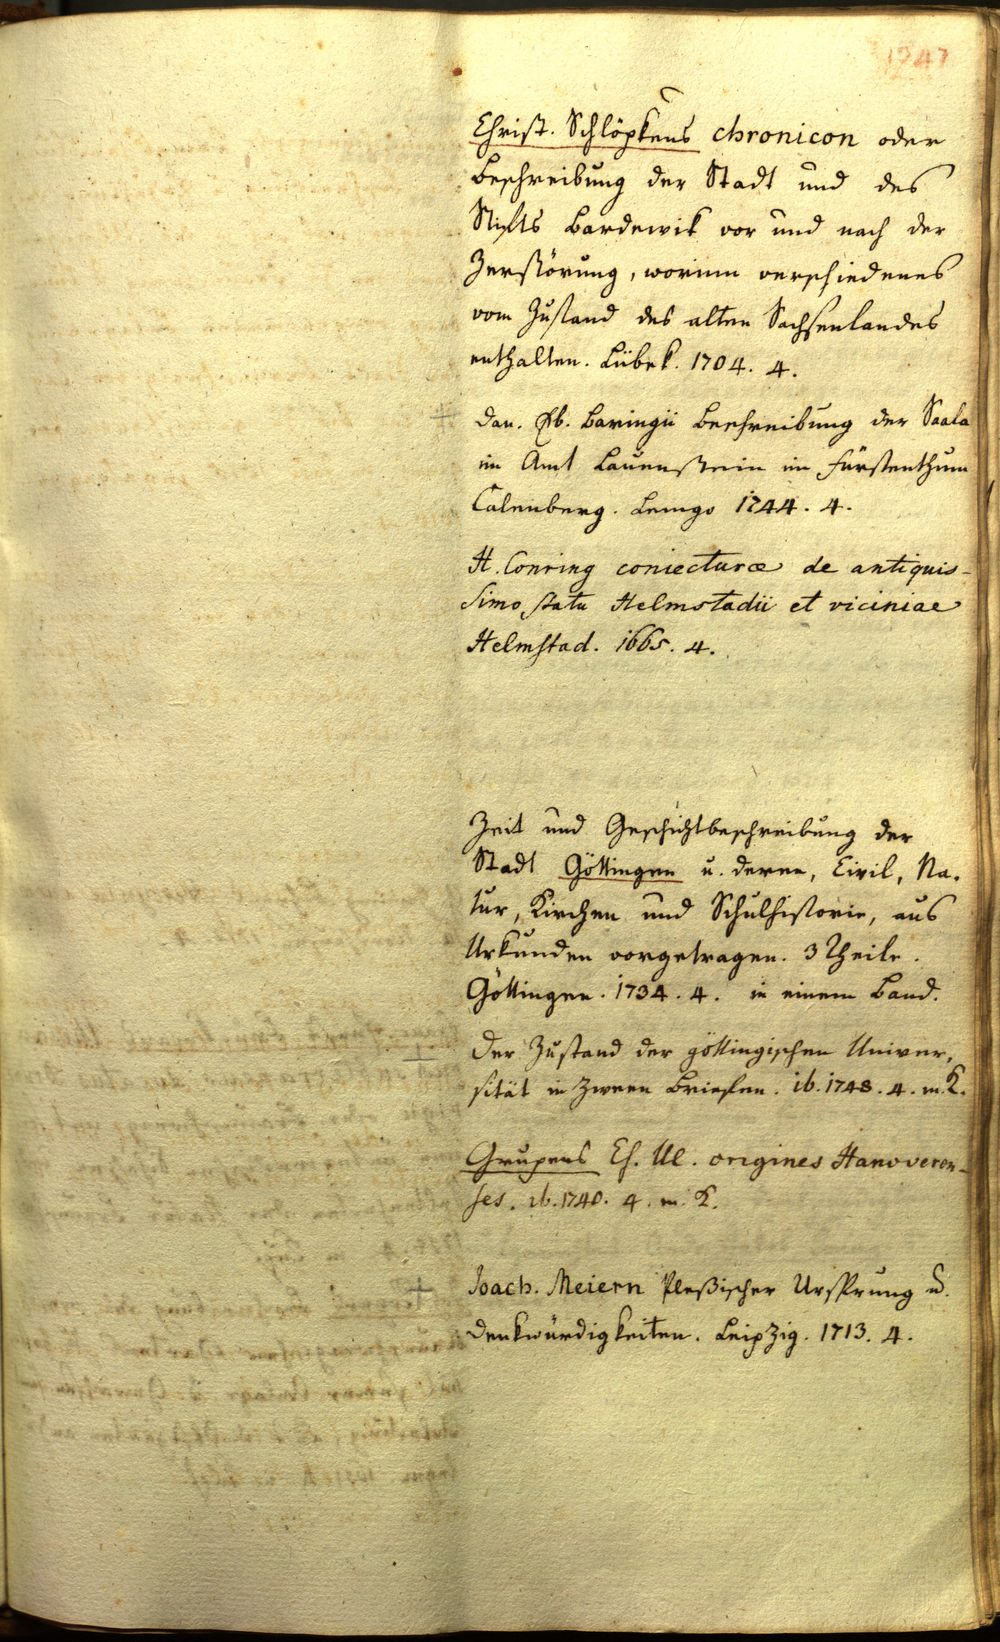 1247
Christ. Schlöpkens chronicon oder
Beschreibung der Stadt und des
Stifts Bardewik vor und nach der
Zerstörung, worinn verschiedenes
vom Zustand des alten Sachsenlandes
enthalten. Lübek. 1704. 4.
Dan. Eb. Baringii Beschreibung der Saala
im Amt Lauenstein im Fürstenthum
Calenberg. Lemgo 1744. 4.
H. Conring coniecturæ de antiquis-
simo statu Helmstadii et viciniae
Helmstad. 1665. 4.
Zeit und Geschichtbeschreibung der
Stadt Göttingen u. deren, Civil, Na-
tur, Kirchen und Schulhistorie, aus
Urkunden vorgetragen. 3 Theile.
Göttingen. 1734. 4. in einem Band.
Der Zustand der göttingischen Univer-
sität in Zween Briefen. ib. 1748. 4. m. K.
Grupens Ch. Ul. origines Hanoveren-
ses. ib. 1740. 4. m. K.
Joach. Meiern Pleßischer Ursprung u.
Denkwürdigkeiten. Leipzig. 1713. 4.